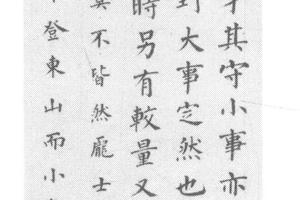 其守小事亦
大事㝎然也
時另有較量又
不皆然龐士
登東山而小